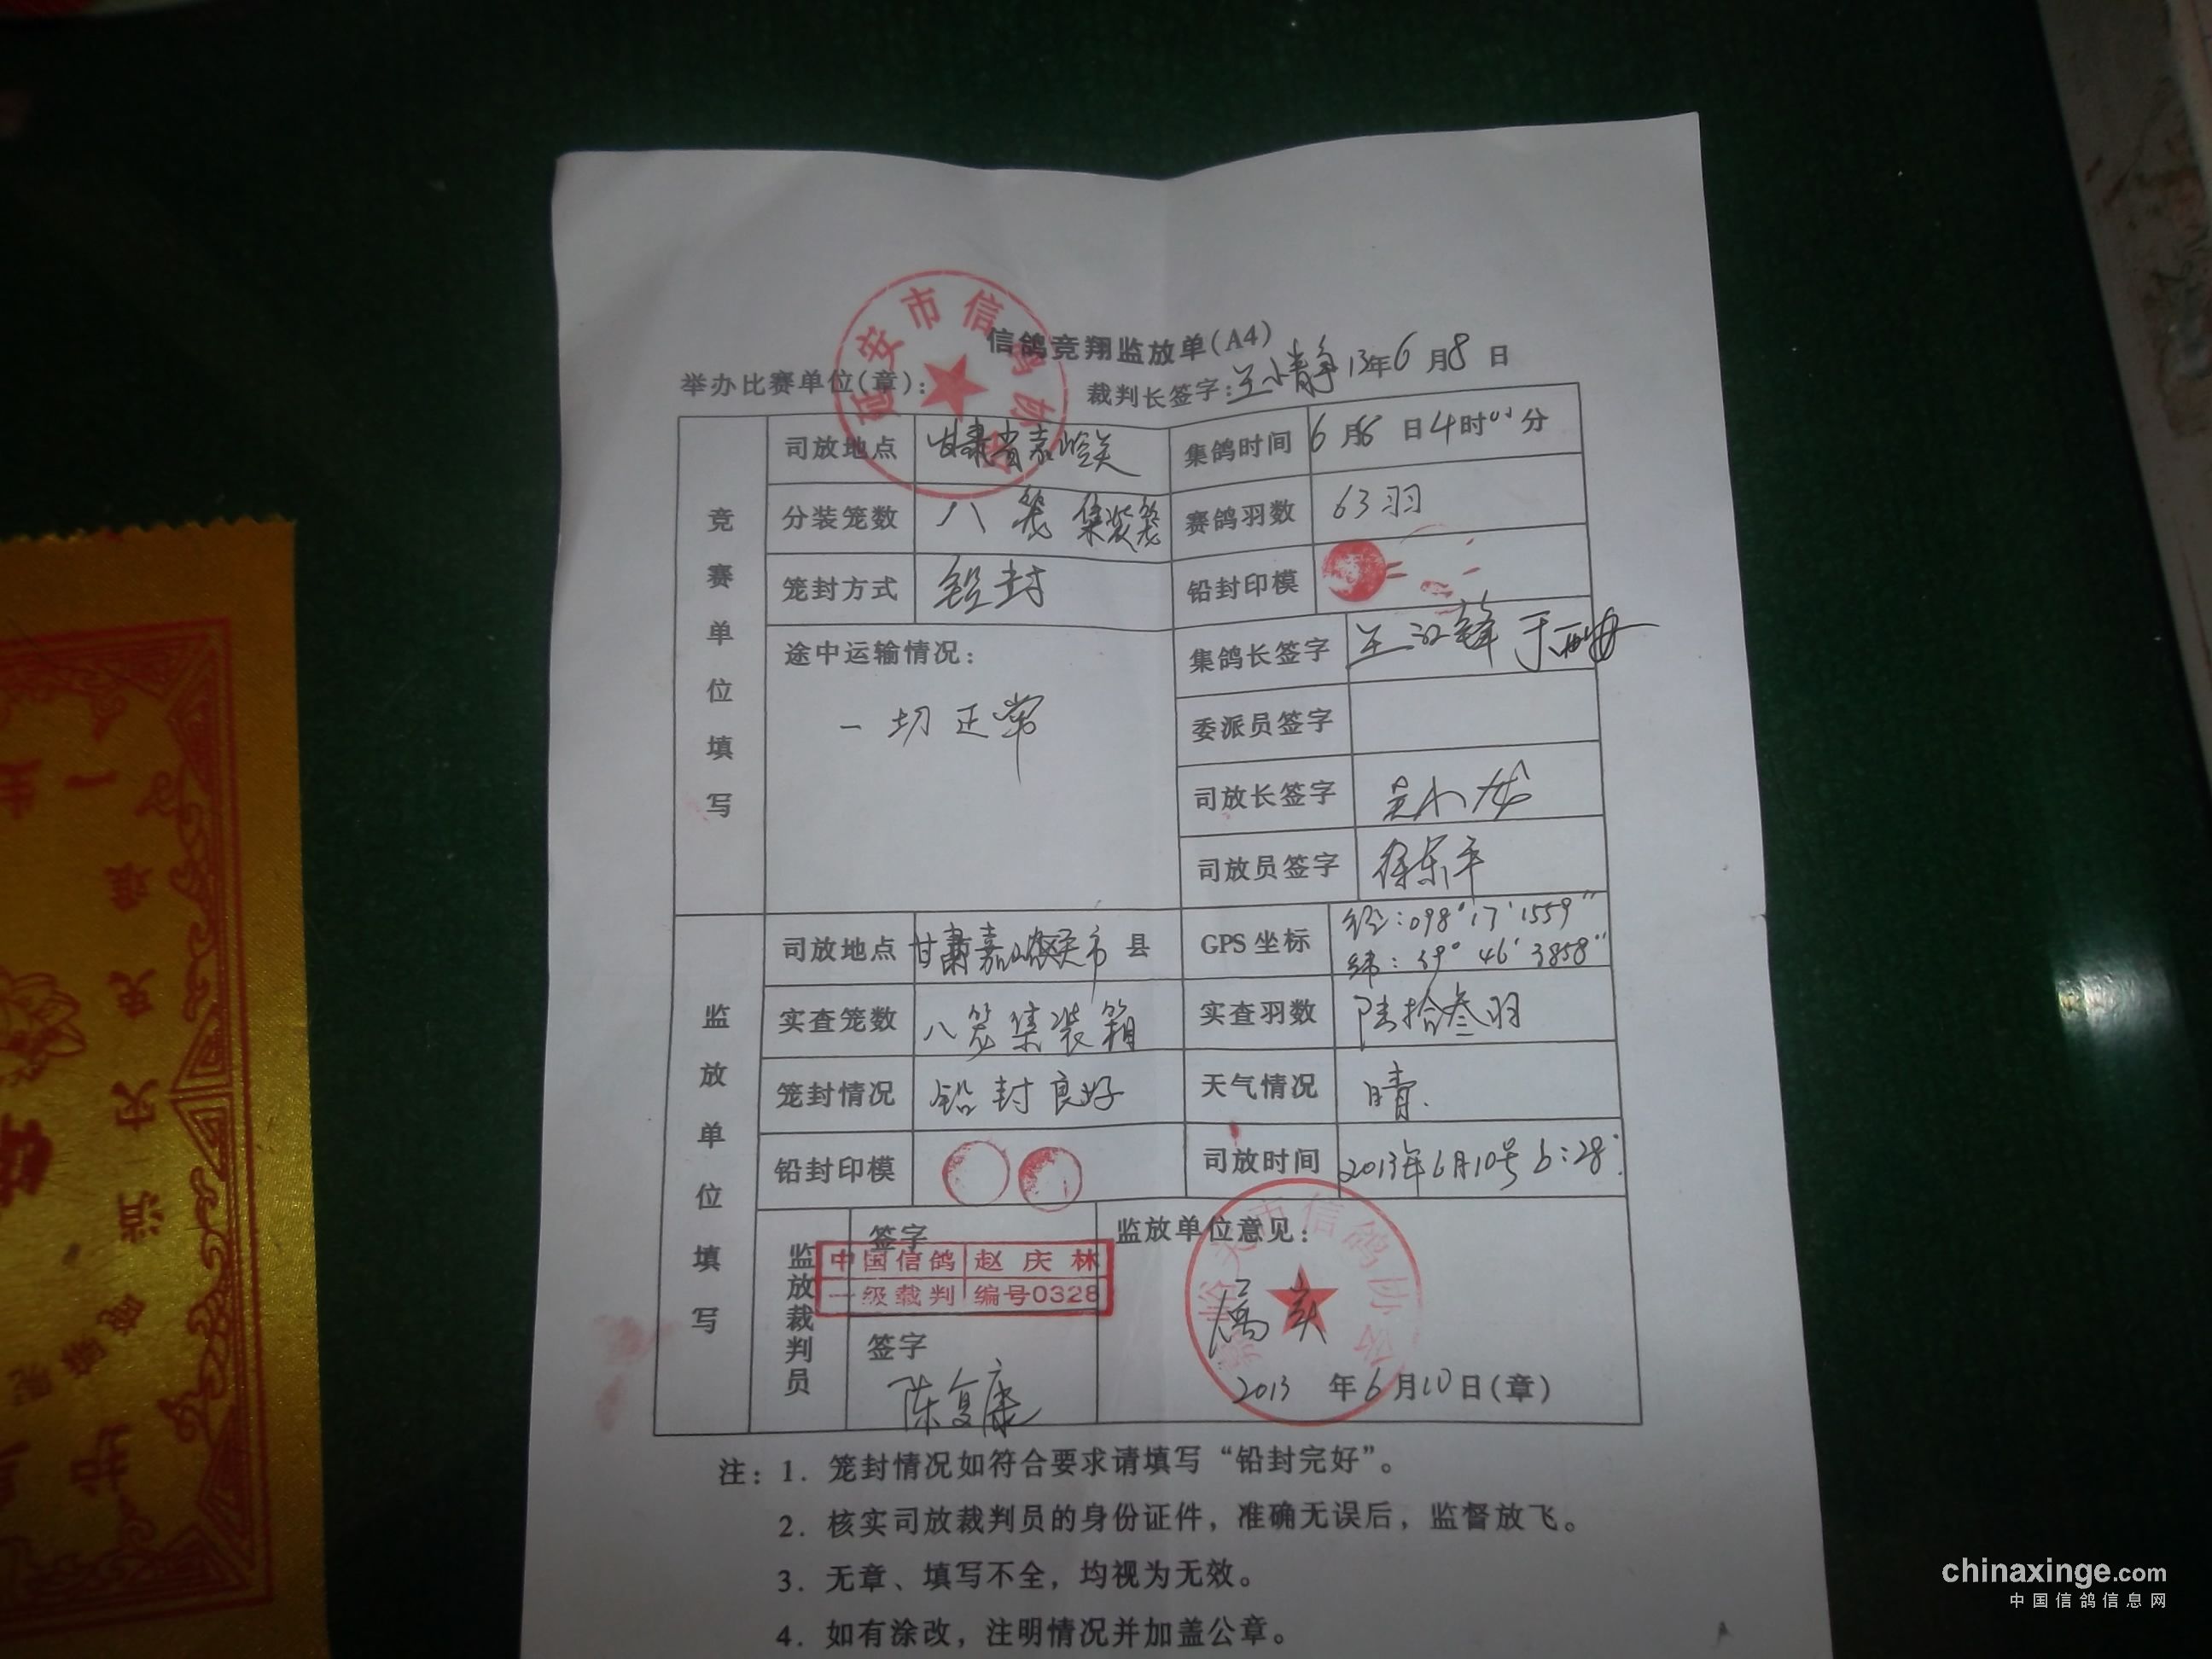 信鸽竞翔监放单(A4)
举办比赛单位(章): 裁判长签字: 王小静 13年6月8日
延安市信鸽协会
竞赛单位填写
司放地点 甘肃省嘉峪关 集鸽时间 6月6日4时00分
分装笼数 八笼 集装笼 赛鸽羽数 63羽
笼封方式 铅封 铅封印模
途中运输情况: 集鸽长签字 王江锋
一切正常
委派员签字
司放长签字
司放员签字 徐东平
监放单位填写
司放地点 甘肃嘉峪关市 县 GPS坐标 经:098°17′1559″
纬:39°46′3858″
实查笼数 八笼集装箱 实查羽数 陆拾叁羽
笼封情况 铅封良好 天气情况 晴.
铅封印模 司放时间 2013年6月10号6:28′
监放裁判员 签字 监放单位意见:
中国信鸽 赵庆林
一级裁判 编号0328
属实
嘉峪关市信鸽协会
签字
陈复康
2013年6月10日(章)
注: 1. 笼封情况如符合要求请填写“铅封完好”。
2. 核实司放裁判员的身份证件，准确无误后，监督放飞。
3. 无章、填写不全，均视为无效。
4. 如有涂改，注明情况并加盖公章。
chinaxinge.com
中国信鸽信息网